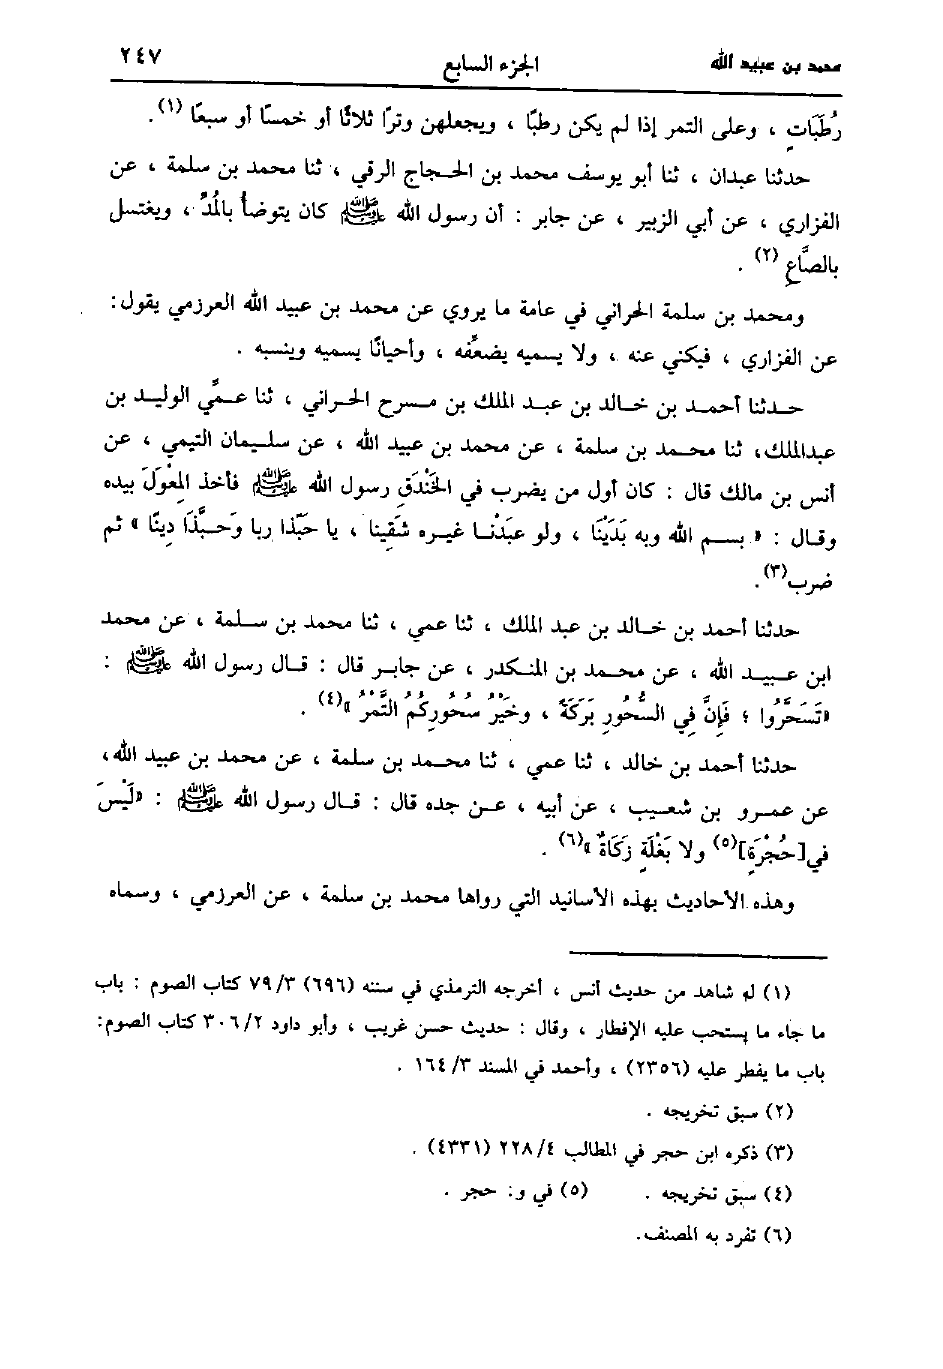 محمد بن عبيد الله الجزء السابع ٢٤٧
رُطَبَاتٍ ، وعلى التمر إذا لم يكن رطبًا ، ويجعلهن وترًا ثلاثًا أو خمسًا أو سبعًا (١) .
حدثنا عبدان ، ثنا أبو يوسف محمد بن الحجاج الرقي ، ثنا محمد بن سلمة ، عن
الفزاري ، عن أبي الزبير ، عن جابر : أن رسول الله ﷺ كان يتوضأ بالمُدِّ ، ويغتسل
بالصَّاعِ (٢) .
ومحمد بن سلمة الحراني في عامة ما يروي عن محمد بن عبيد الله العرزمي يقول:
عن الفزاري ، فيكني عنه ، ولا يسميه يضعِّفه ، وأحيانًا يسميه وينسبه .
حدثنا أحمد بن خالد بن عبد الملك بن مسرح الحراني ، ثنا عمِّي الوليد بن
عبدالملك، ثنا محمد بن سلمة ، عن محمد بن عبيد الله ، عن سليمان التيمي ، عن
أنس بن مالك قال : كان أول من يضرب في الخَنْدَقِ رسول الله ﷺ فأخذ المِعْوَلَ بيده
وقال : « بسم الله وبه بَدَيْنَا ، ولو عبَدْنا غيره شَقِينا ، يا حَبّذا ربا وَحبَّذَا دِينًا » ثم
ضرب(٣).
حدثنا أحمد بن خالد بن عبد الملك ، ثنا عمي ، ثنا محمد بن سلمة ، عن محمد
ابن عبيد الله ، عن محمد بن المنكدر ، عن جابر قال : قال رسول الله ﷺ :
«تَسَحَّرُوا ؛ فَإِنَّ فِي السُّحُورِ بَرَكَةً ، وخَيْرُ سُحُورِكُمُ التَّمْرُ »(٤) .
حدثنا أحمد بن خالد ، ثنا عمي ، ثنا محمد بن سلمة ، عن محمد بن عبيد الله،
عن عمرو بن شعيب ، عن أبيه ، عن جده قال : قال رسول الله ﷺ : «لَيْسَ
في[حُجْرَةٍ](٥) ولا بَغْلَةٍ زَكَاةٌ »(٦) .
وهذه الأحاديث بهذه الأسانيد التي رواها محمد بن سلمة ، عن العرزمي ، وسماه
(١) له شاهد من حديث أنس ، أخرجه الترمذي في سننه (٦٩٦) ٧٩/٣ كتاب الصوم : باب
ما جاء ما يستحب عليه الإفطار ، وقال : حديث حسن غريب ، وأبو داود ٣٠٦/٢ كتاب الصوم:
باب ما يفطر عليه (٢٣٥٦) ، وأحمد في المسند ١٦٤/٣ .
(٢) سبق تخريجه .
(٣) ذكره ابن حجر في المطالب ٢٢٨/٤ (٤٣٣١) .
(٤) سبق تخريجه . (٥) في و: حجر .
(٦) تفرد به المصنف.